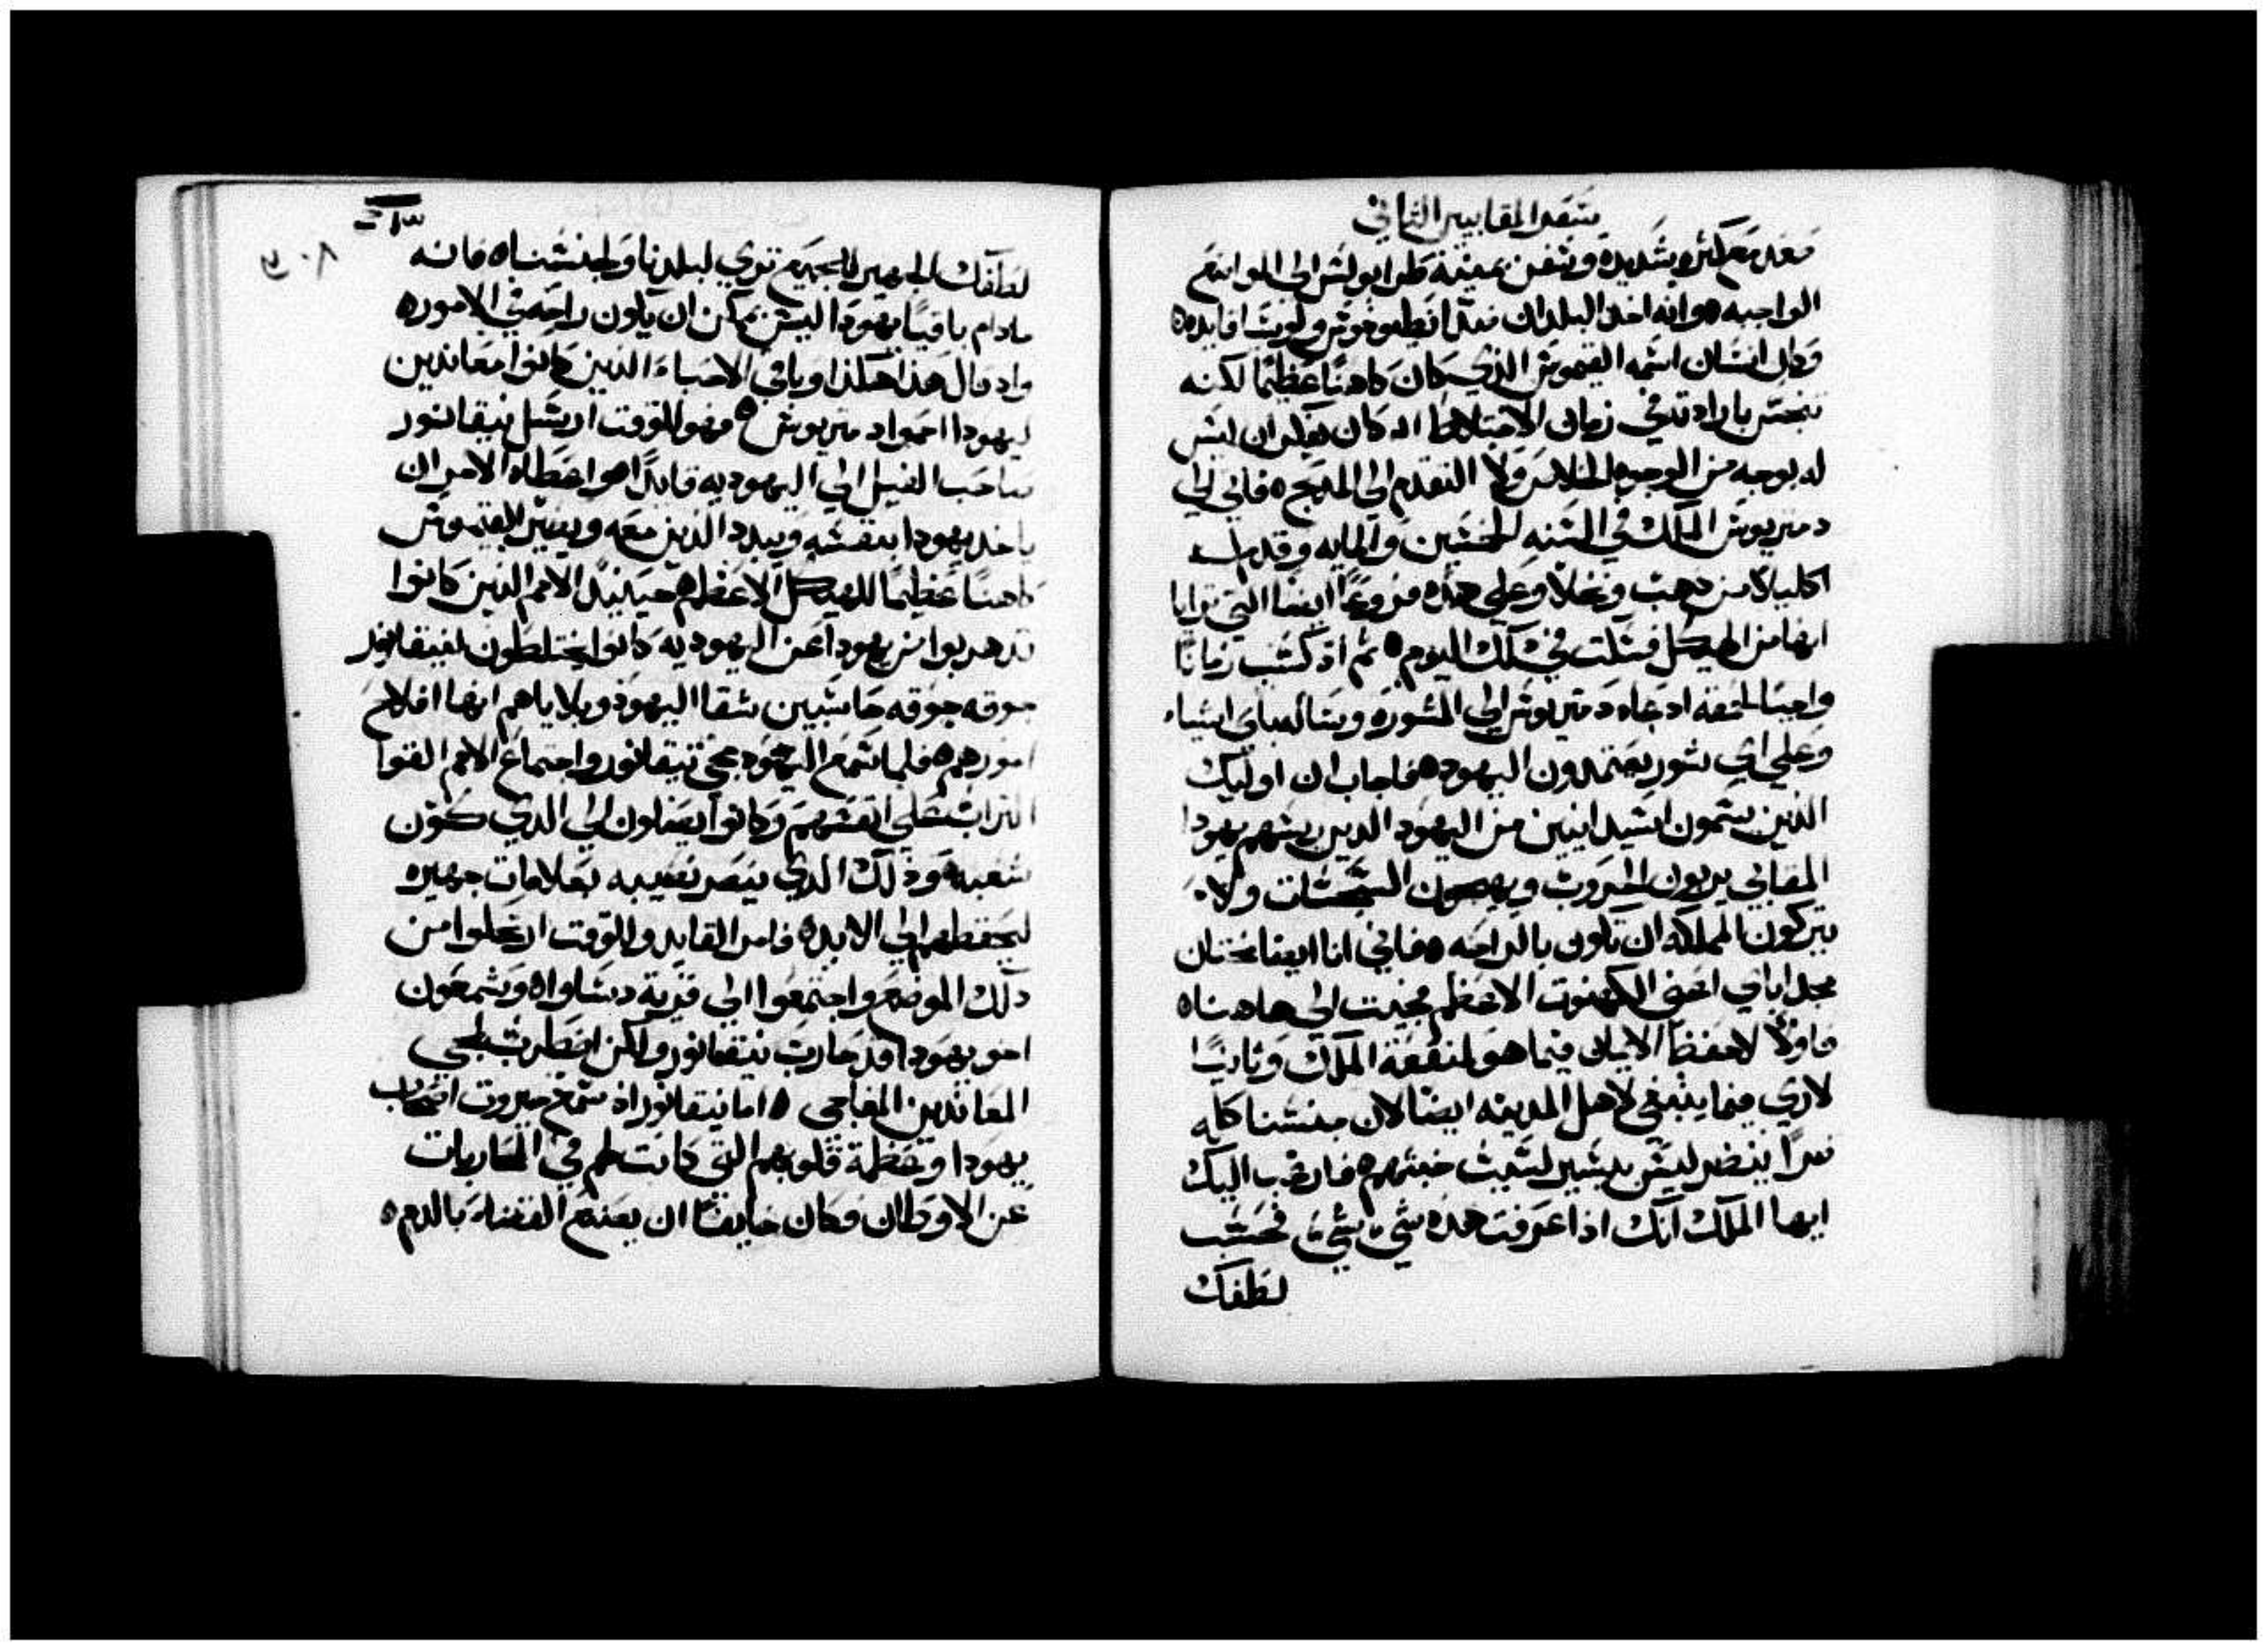 سفر المقابيين الثاني
صعد مع كثره شديده وسفن بمينة طرابولس الى المواضع
الواجبه ٥ وانه اخذ البلدان ضدًا انطيوخوش ولوسيا قايده ٥
وكان انسان اسمه القيموش الذي كان كاهنًا عظيمًا لكنه
تنجس بارادته في زمان الاختلاط اد كان يفكر ان ليس
له بوجه من الوجوه الخلاص ولا التقدم الى المدبح ٥ فاتى الى
دمتريوش الملك في السنه الخمسين والمايه وقدم له
اكليلًا من دهب ونخلًا وعلى هذه فروعًا ايضا التي تراا
انها من الهيكل فسكت في ذلك اليوم ٥ ثم اد كسب زمانًا
واجبًا لحمقه ادعاه دمتريوش الى المشوره وساله على اي اشياء
وعلى اي شور يعتمدون اليهود ٥ فاجاب ان اوليك
الذين يسمون اشيدانيين من اليهود الدين ريسهم يهودا
المقابي يربون الحروب ويهيجون السجسات ولا
يتركون المملكه ان تكون بالراحه ٥ فاني انا ايضا خنان
مجد اباي اعني الكهنوت الاعظم مجيت الى هاهنا ٥
فاولًا لاحفظ الايمان فيما هو لمنفعة الملك وثانيًا
لاري فيما ينبغي لاهل المدينه ايضا لان جنسنا كله
ضرًا ينضر ليس بيسير لسبب خبثهم ٥ فارغب اليك
ايها الملك انك اذا عرفت هذه شي شي فحسب
لطفك
لطفك الجهير للجميع تري لبلدنا ولجنسنا ٥ فانه
مادام باقيًا يهودا ليس يمكن ان يكون راحه في الامور ٥
واد قال هذا هكذا وباقي الاحباء الذين كانوا معاندين
ليهودا احموا دمتريوش ٥ فهو للوقت ارسل نيقانور
صاحب الفيل الي اليهوديه قايدًا ٥ واعطاه الامر ان
ياخد يهودا بنفسه ويبدد الذين معه ويصير القيموش
كاهنًا عظيمًا للهيكل الاعظم ٥ حينيدٍ الامم الذين كانوا
قد هربوا من يهودا عن اليهوديه كانوا يختلطون لنيقانور
جوقه جوقه حاسبين شقا اليهود وبلاياهم انها افلاح
امورهم ٥ فلما سمع اليهود بمجي نيقانور واجتماع الامم القوا
التراب على انفسهم وكانوا يصلون الي الدي كون
شعبه وذلك الدي ينصر نصيبه بعلامات جهيره
ليحفظهم الي الابد ٥ فامر القايد وللوقت ارتحلوا من
دلك الموضع واجتمعوا الى قرية دساوا ٥ وشمعون
اخو يهودا قد حارب نيقانور ولكن اضطرب لمجي
المعاندين المفاجي ٥ اما نيقانور اذ سمع جبروت اصحاب
يهودا وعظمة قلوبهم التي كانت لهم في المحاربات
عن الاوطان فكان خايفًا ان يصنع القضاء بالدم ٥